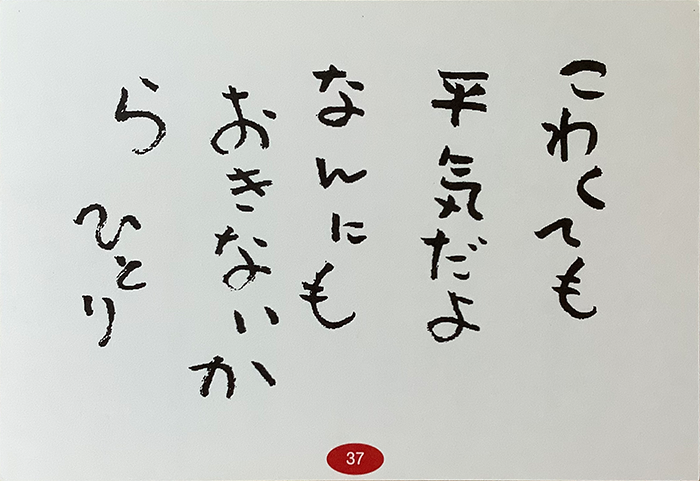 こわくても
平気だよ
なんにも
おきないか
ら
ひとり
37